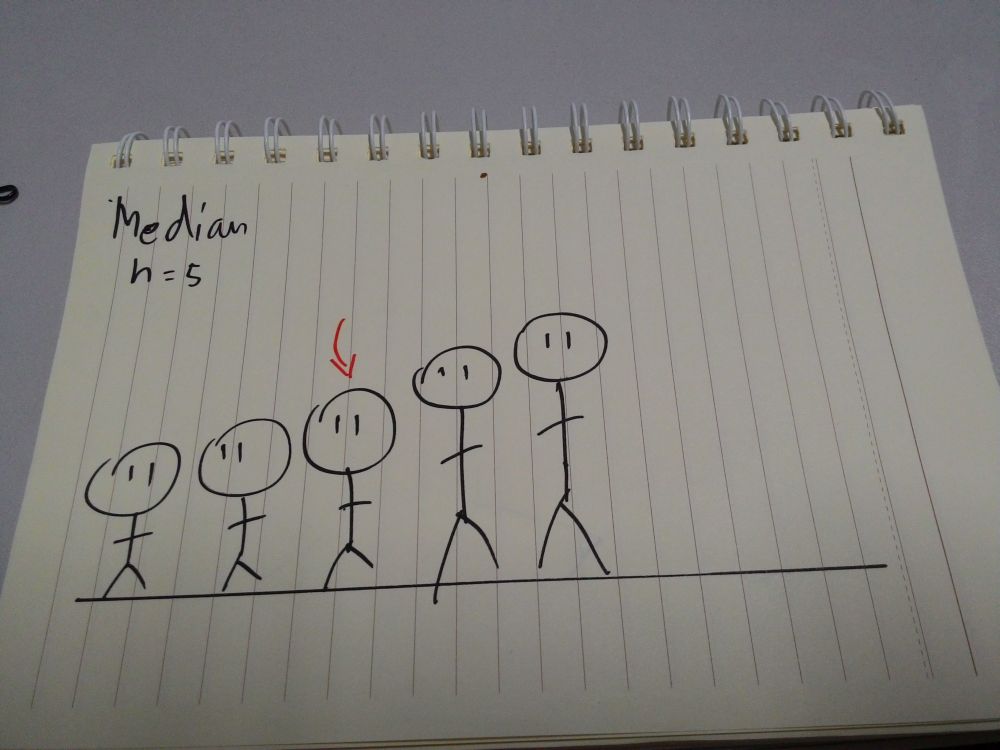 Median
n = 5